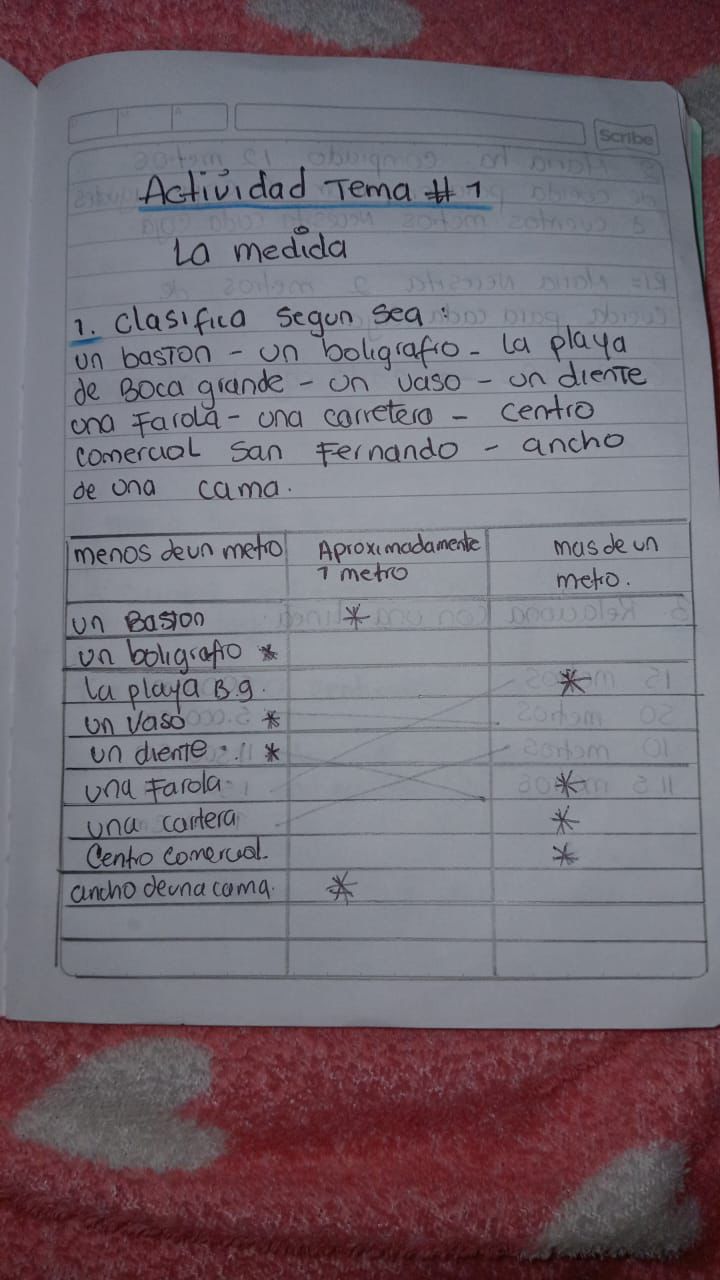 Scribe
Actividad Tema # 1
La medida
1. Clasifica segun sea :
un baston - un boligrafro - la playa
de Boca grande - un vaso - un diente
una Farola - una carretera - centro
comercial San Fernando - ancho
de una cama.
menos de un metro Aproximadamente 1 metro mas de un metro.
un Baston *
un boligrafo *
la playa B.g. *
un vaso *
un diente *
una Farola *
una cartera *
Centro comercial. *
ancho de una cama. *